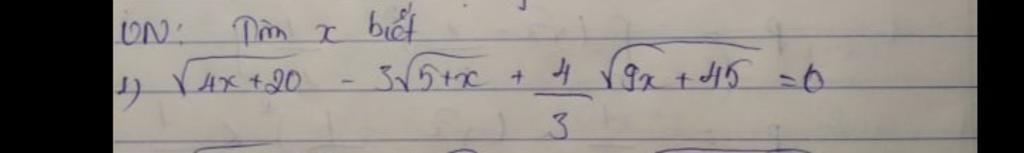 ÔN: Tìm x biết
1) √(4x+20) - 3√(5+x) + 4/3 √(9x+45) = 6